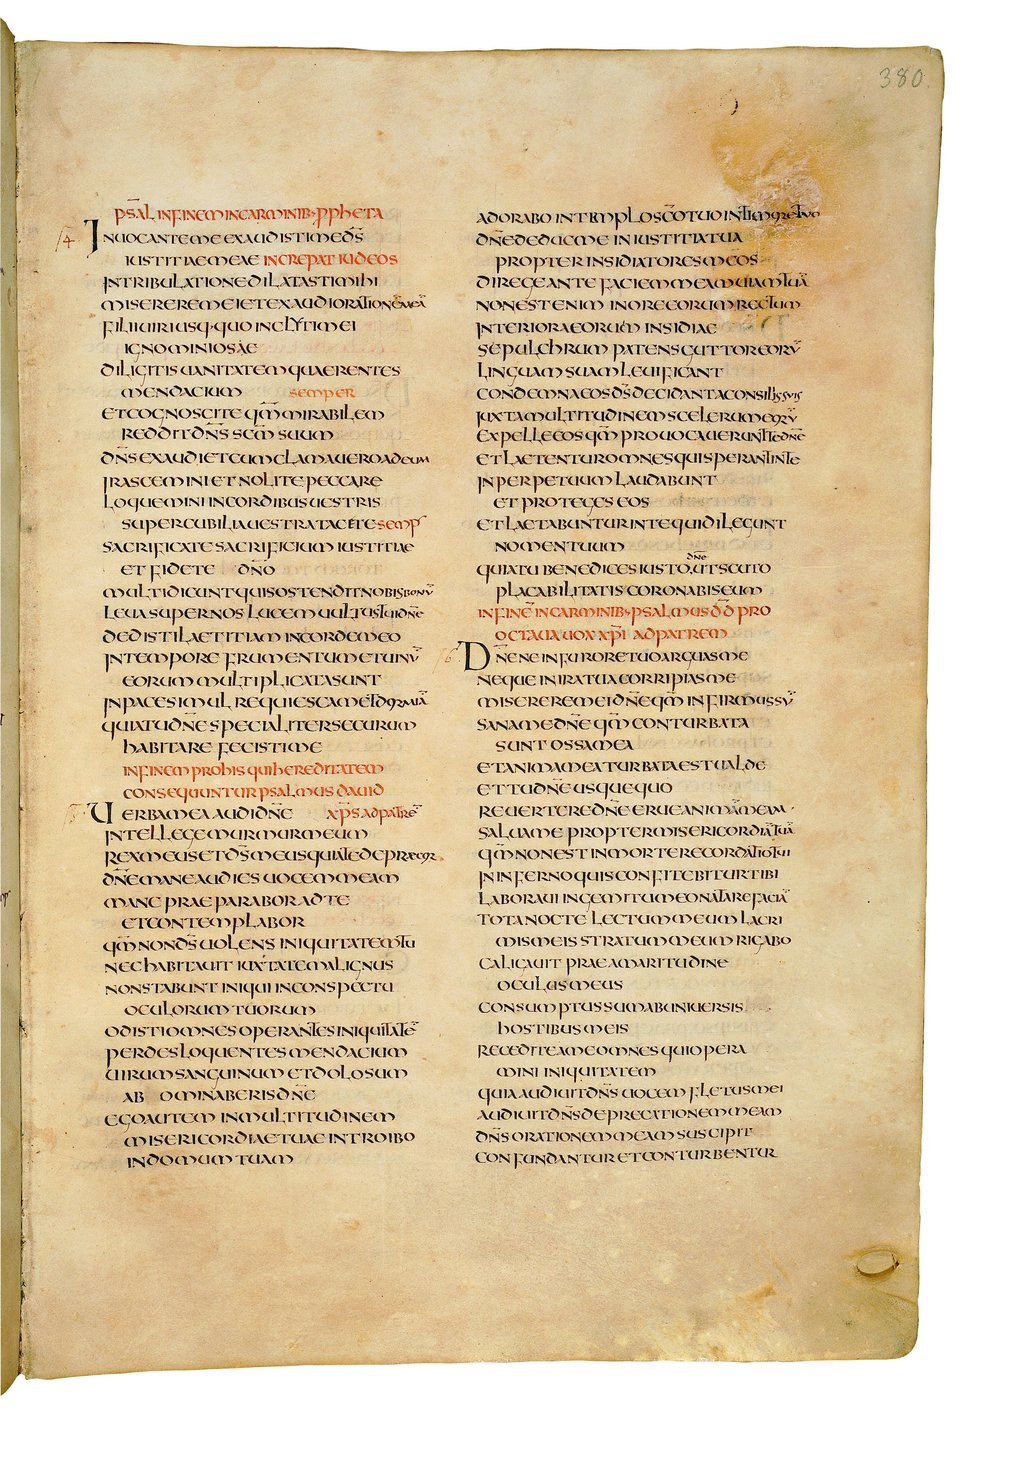 380
PSAL IN FINEM IN CARMINIB· PPHETA
4
INUOCANTE ME EXAUDISTI ME DS
IUSTITIAE MEAE INCREPAT IUDEOS
IN TRIBULATIONE DILATASTI MIHI
MISERERE MEI ET EXAUDI ORATIONE MEA
FILII UIRI USQ· QUO INCLYTI MEI
IGNOMINIOSAE
DILIGITIS UANITATEM QUAERENTES
MENDACIUM SEMPER
ET COGNOSCITE QM MIRABILEM
REDDIT DNS SCM SUUM
DNS EXAUDIET CUM CLAMAUERO AD EUM
IRASCEMINI ET NOLITE PECCARE
LOQUEMINI IN CORDIBUS UESTRIS
SUPER CUBILIA UESTRA TACETE SEMP
SACRIFICATE SACRIFICIUM IUSTITIAE
ET FIDETE DNO
MULTI DICUNT QUIS OSTENDIT NOBIS BONU
LEUA SUPER NOS LUCEM UULTUS TUI DNE
DEDISTI LAETITIAM IN CORDE MEO
IN TEMPORE FRUMENTUM ET UINU
EORUM MULTIPLICATA SUNT
IN PACE SIMUL REQUIESCAM ET DORMIA
QUIA TU DNE SPECIALITER SECURUM
HABITARE FECISTI ME
IN FINEM PRO HIS QUI HEREDITATEM
CONSEQUUNTUR PSALMUS DAUID
UERBA MEA AUDI DNE XPS AD PATRE
INTELLEGE MURMUR MEUM
REX MEUS ET DS MEUS QUIA TE DEPRAECOR
DNE MANE AUDIES UOCEM MEAM
MANE PRAEPARABOR AD TE
ET CONTEMPLABOR
QM NON DS UOLENS INIQUITATEM TU
NEC HABITAUIT IUXTA TE MALIGNUS
NON STABUNT INIQUI IN CONSPECTU
OCULORUM TUORUM
ODISTI OMNES OPERANTES INIQUITATE
PERDES LOQUENTES MENDACIUM
UIRUM SANGUINUM ET DOLOSUM
AB OMINABERIS DNE
EGO AUTEM IN MULTITUDINEM
MISERICORDIAE TUAE INTROIBO
IN DOMUM TUAM
ADORABO IN TEMPLO SCO TUO IN TIMORE TUO
DNE DEDUC ME IN IUSTITIA TUA
PROPTER INSIDIATORES MEOS
DIRIGE ANTE FACIEM MEAM UIAM TUA
NON EST ENIM IN ORE EORUM RECTUM
INTERIORA EORUM INSIDIAE
SEPULCHRUM PATENS GUTTOR EORU
LINGUAM SUAM LEUIFICANT
CONDEMNA EOS DS DECIDANT A CONSILIIS SUIS
IUXTA MULTITUDINEM SCELERUM EORU
EXPELLE EOS QM PROUOCAUERUNT TE DNE
ET LAETENTUR OMNES QUI SPERANT IN TE
IN PERPETUUM LAUDABUNT
ET PROTEGES EOS
ET LAETABUNTUR IN TE QUI DILEGUNT
NOMEN TUUM
QUIA TU BENEDICES IUSTO DNE UT SCUTO
PLACABILITATIS CORONABIS EUM
IN FINE IN CARMINIB· PSALMUS DD PRO
OCTAUA UOX XPI AD PATREM
6
DNE NE IN FURORE TUO ARGUAS ME
NEQUE IN IRA TUA CORRIPIAS ME
MISERERE MEI DNE QM INFIRMUS SU
SANA ME DNE QM CONTURBATA
SUNT OSSA MEA
ET ANIMA MEA TURBATA EST UALDE
ET TU DNE USQUEQUO
REUERTERE DNE ERUE ANIMAM MEAM·
SALUA ME PROPTER MISERICORDIA TUA
QM NON EST IN MORTE RECORDATIO TUI
IN INFERNO QUIS CONFITEBITUR TIBI
LABORAUI IN GEMITU MEO NATARE FACIA
TOTA NOCTE LECTUM MEUM LACRI
MIS MEIS STRATUM MEUM RIGABO
CALIGAUIT PRAE AMARITUDINE
OCULUS MEUS
CONSUMPTUS SUM AB UNIUERSIS
HOSTIBUS MEIS
RECEDITE A ME OMNES QUI OPERA
MINI INIQUITATEM
QUIA AUDIUIT DNS UOCEM FLETUS MEI
AUDIUIT DNS DEPRECATIONEM MEAM
DNS ORATIONEM MEAM SUSCIPIT
CONFUNDANTUR ET CONTURBENTUR